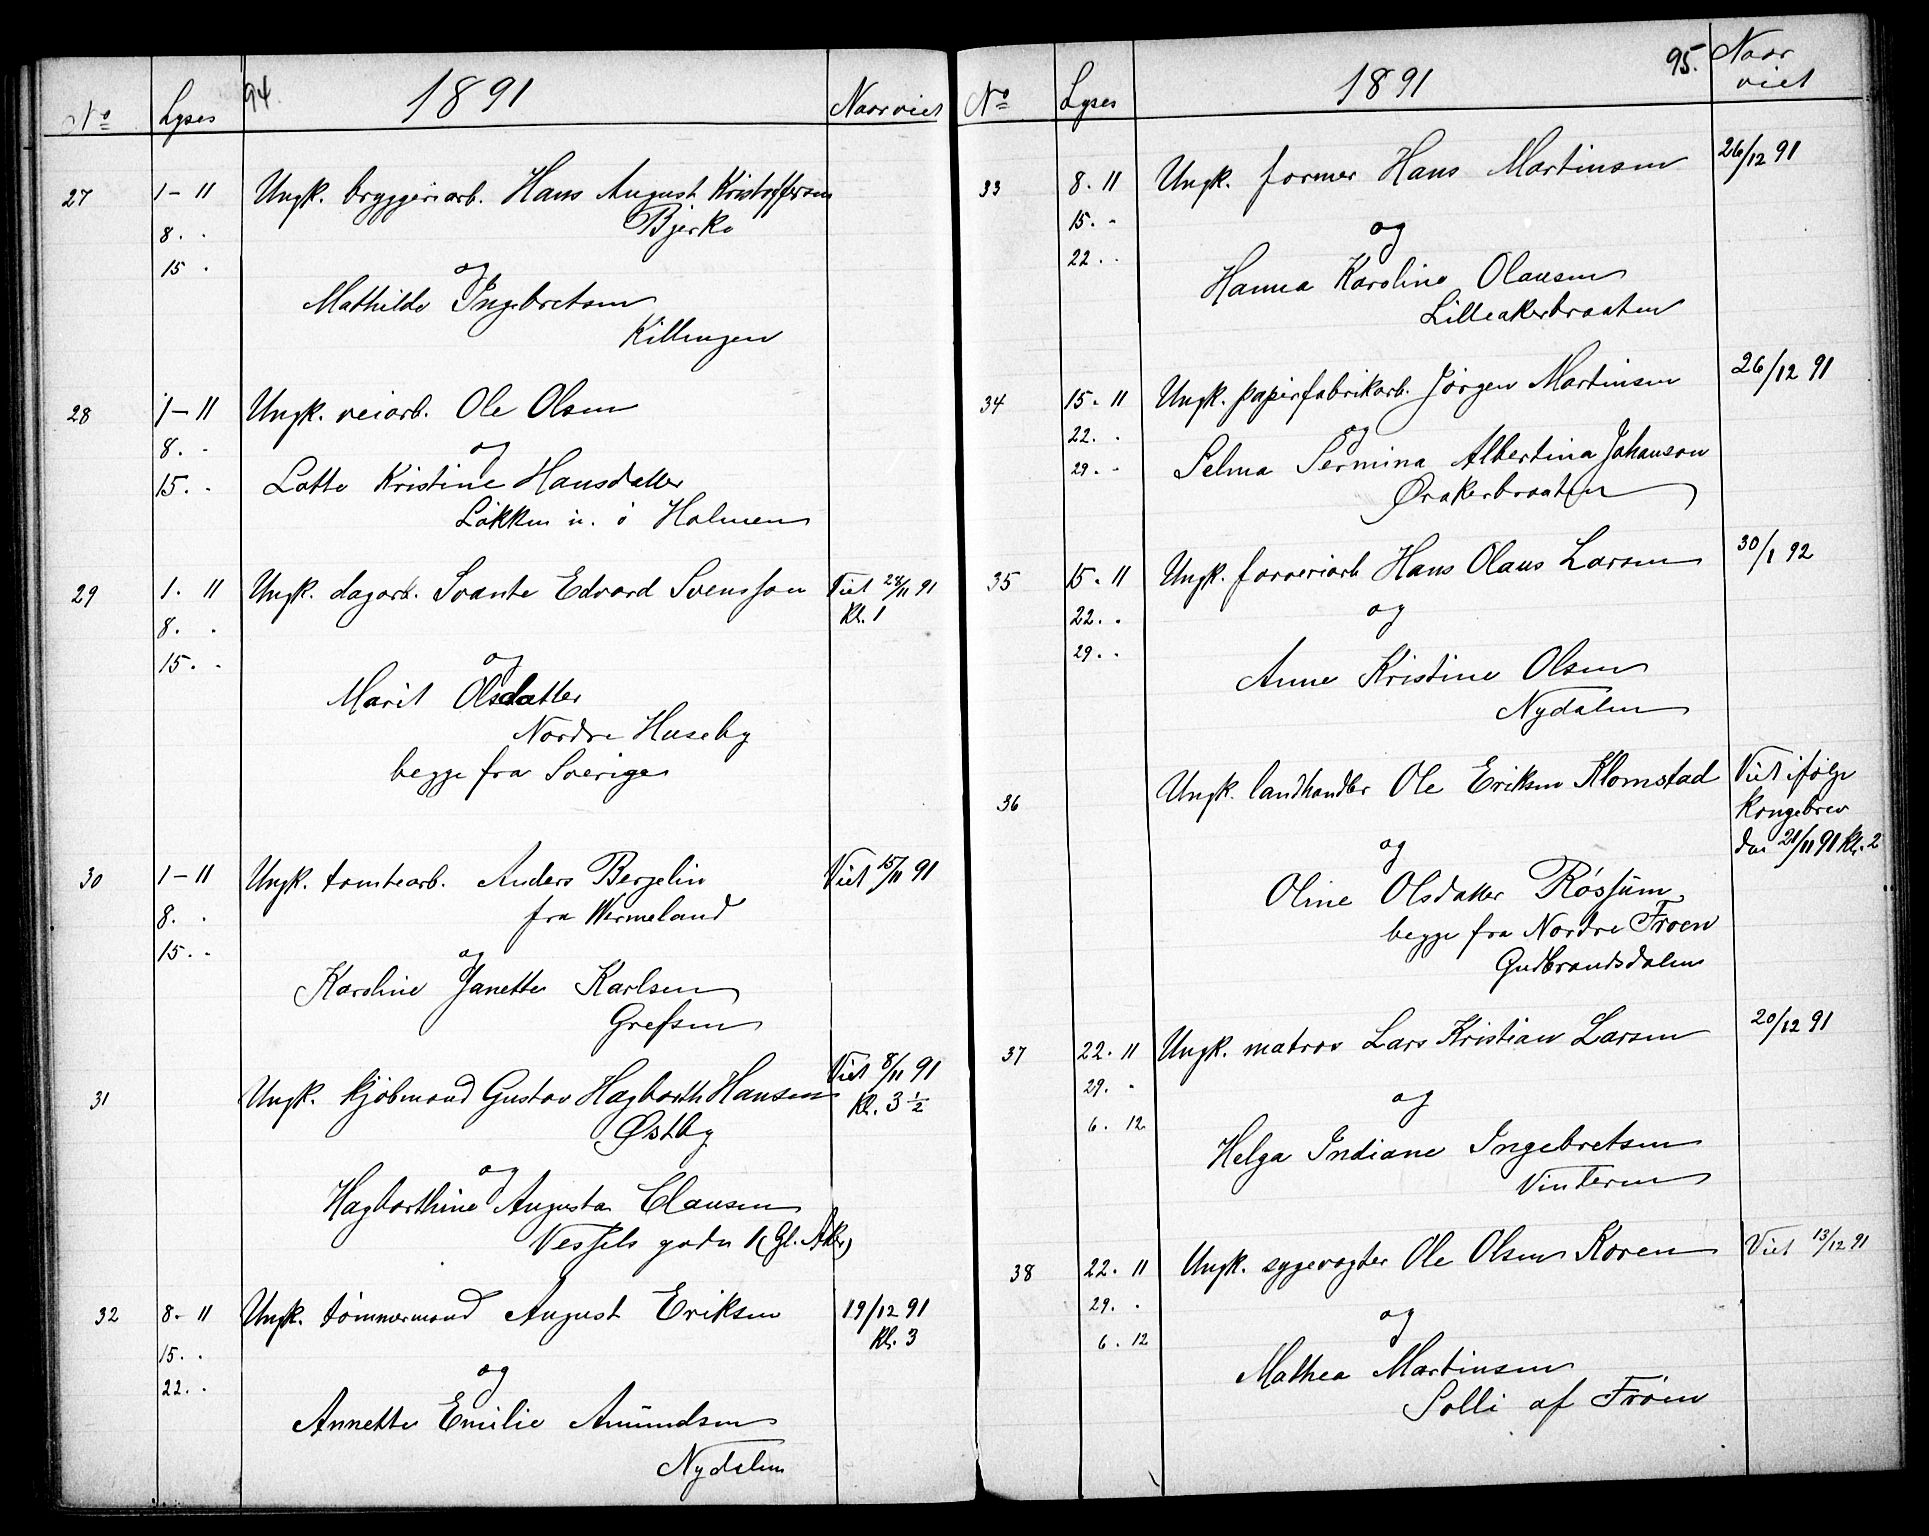 94.
1891
No Lyses Naar viet
27 1-11 Ungk. bryggeriarb. Hans August Kristoffersen
8. - Bjerke
15 - og
Mathilde Ingebretsen
Killingen
28 1-11 Ungk. veiarb. Ole Olsen
8. - og
15. - Lotte Kristine Hansdatter
Løkken u. i Holmen
29 1. 11 Ungk. dagarb. Svante Edvard Svensson Viet 28/11 91
8. - Kl. 1
15. - og
Marit Olsdatter
Nordre Huseby
begge fra Sverige
30 1-11 Ungk. tomtearb. Anders Bergelin Viet 15/11 91
8. - fra Wermeland
15. - og
Karoline Janette Karlsen
Grefsen
31 Ungk. kjøbmand Gustav Hagbarth Hansen Viet 8/11 91
Østby Kl. 3 1/2
og
Hagbarthine Augusta Clausen
Vessels gade 1 (Gl. Aker)
32 8-11 Ungk. tømmermand August Eriksen 19/12 91
15. - Kl. 3
22. - og
Annette Emilie Amundsen
Nydalen
95.
1891
No Lyses Naar viet
33 8. 11 Ungk. former Hans Martinsen 26/12 91
15. - og
22. - Hanna Karoline Olausen
Lilleakerbraaten
34 15. 11 Ungk. papirfabrikarb. Jørgen Martinsen 26/12 91
22. - og
29. - Selma Sermina Albertina Johanson
Ørakerbraaten
35 15. 11 Ungk. farveriarb Hans Olaus Larsen 30/1 92
22. - og
29. -
Anne Kristine Olsen
Nydalen
36 Ungk. landhandler Ole Eriksen Klomstad Viet ifølge
Kongebrev
og den 21/11 91 Kl. 2
Oline Olsdatter Røssum
begge fra Nordre Froen
Gudbrandsdalen
37 22. 11 Ungk. matros Lars Kristian Larsen 20/12 91
29. - og
6. 12
Helga Indiane Ingebretsen
Vinteren
38 22. 11 Ungk. sygevogter Ole Olsen Koren Viet 13/12 91
29. - og
6. 12
Mathea Martinsen
Solli af Frøen